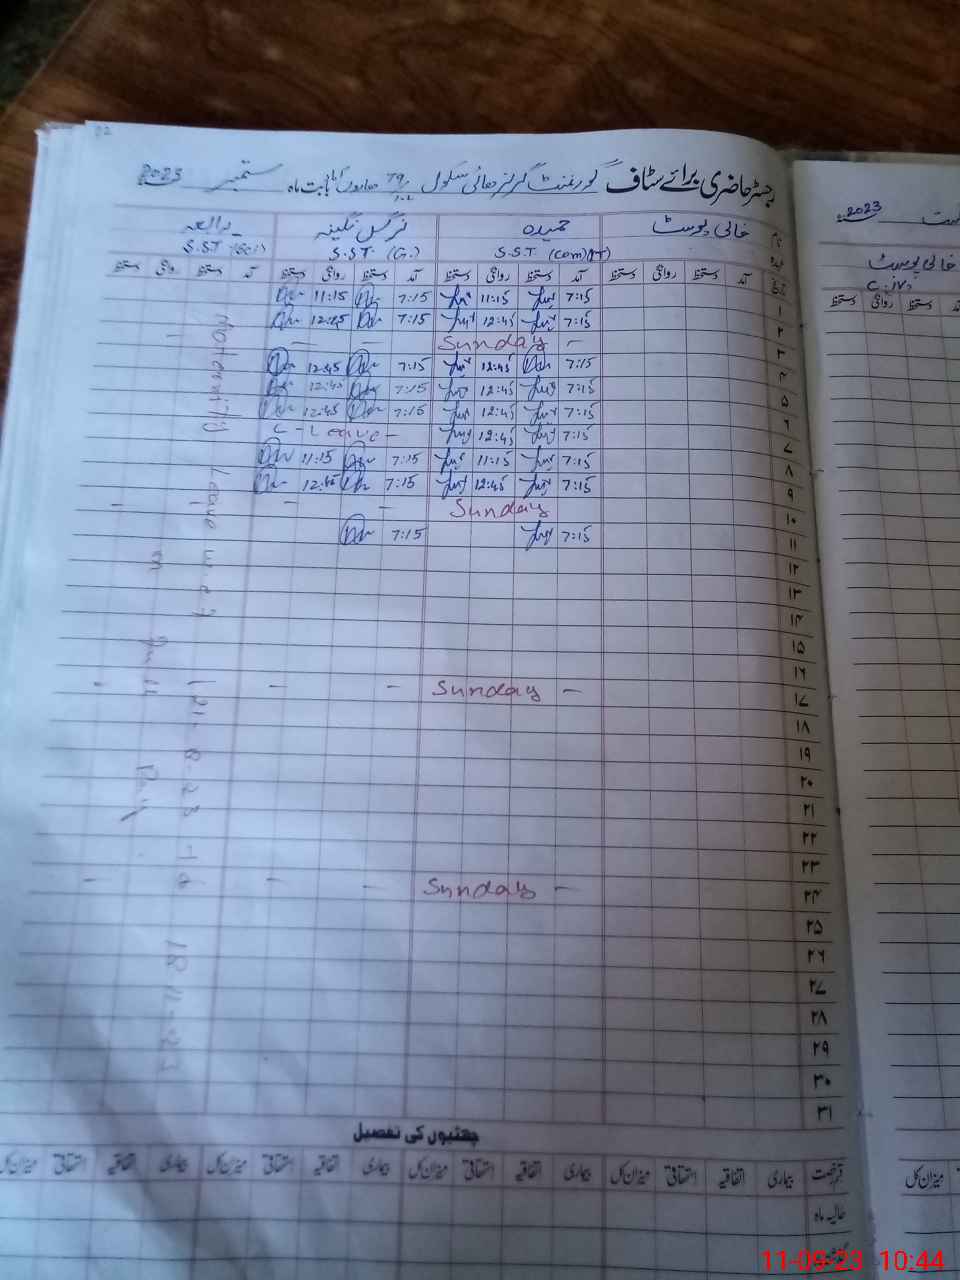 02
رجسٹر حاضری برائے سٹاف گورنمنٹ گرلز ہائی سکول 79 بابت ماہ ستمبر 2023
نام خالی پوسٹ حمیدہ نرگس نگینہ
عہدہ S.S.T (Com)(IT) S.S.T (G.) S.S.T (Sci)
تاریخ آمد دستخط روانگی دستخط آمد دستخط روانگی دستخط آمد دستخط روانگی دستخط آمد دستخط روانگی دستخط
۱ 7:15 11:15 7:15 11:15
۲ 7:15 12:45 7:15 12:45
۳ - Sunday - -
۴ 7:15 12:45 7:15 12:45
۵ 7:15 12:45 7:15 12:45
۶ 7:15 12:45 7:15 12:45
۷ 7:15 12:45 C-Leave-
۸ 7:15 11:15 7:15 11:15
۹ 7:15 12:45 7:15 12:45
۱۰ Sunday - - -
۱۱ 7:15 7:15
۱۲
۱۳
۱۴
۱۵
۱۶
۱۷ - Sunday - - -
۱۸
۱۹
۲۰
۲۱
۲۲
۲۳
۲۴ - Sunday - - -
۲۵
۲۶
۲۷
۲۸
۲۹
۳۰
۳۱
Maternity Leave w.e.f 21.8.23 To 18.11.23
on full Pay
چھٹیوں کی تفصیل
قسم رخصت بیماری اتفاقیہ استحقاقی میزان کل بیماری اتفاقیہ استحقاقی میزان کل بیماری اتفاقیہ استحقاقی میزان کل بیماری اتفاقیہ استحقاقی میزان کل
حالیہ ماہ
2023
خالی پوسٹ
C.IV
دستخط روانگی دستخط
میزان کل
11-09-23 10:44